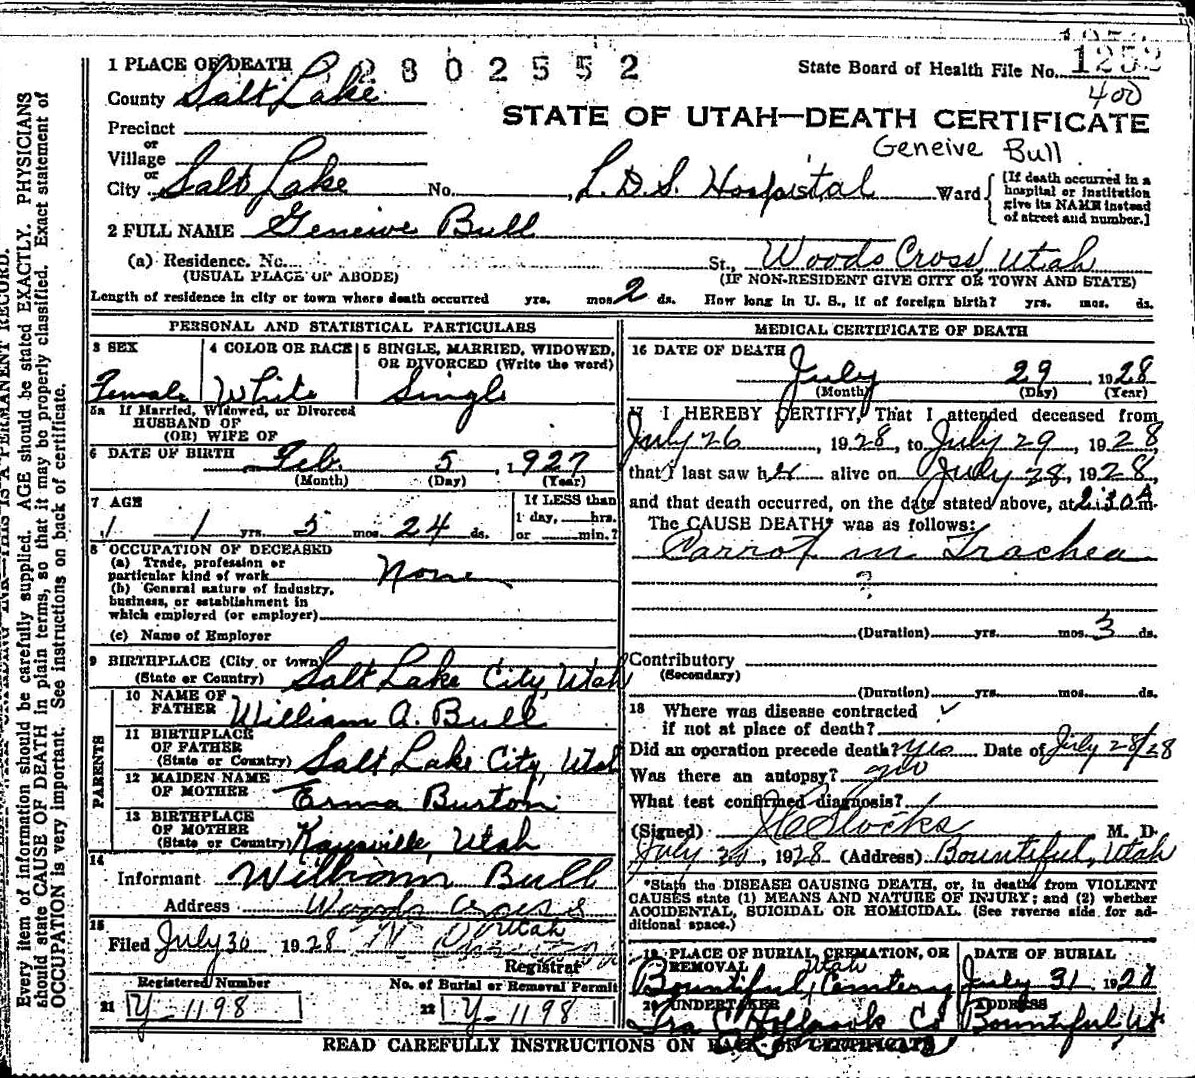 1252
1 PLACE OF DEATH 2802552 State Board of Health File No. 1252
County Salt Lake 400
STATE OF UTAH—DEATH CERTIFICATE
Precinct
or
Village
Geneive Bull
or
City Salt Lake No. , L.D.S. Hospital Ward [If death occurred in a hospital or institution give its NAME instead of street and number.]
2 FULL NAME Geneive Bull
(a) Residence. No. St., Woods Cross, Utah
(USUAL PLACE OF ABODE) (IF NON-RESIDENT GIVE CITY OR TOWN AND STATE)
Length of residence in city or town where death occurred yrs. mos. 2 ds. How long in U. S., if of foreign birth? yrs. mos. ds.
PERSONAL AND STATISTICAL PARTICULARS
3 SEX Female
4 COLOR OR RACE White
5 SINGLE, MARRIED, WIDOWED, OR DIVORCED (Write the word) Single
5a If Married, Widowed, or Divorced
HUSBAND OF
(OR) WIFE OF
6 DATE OF BIRTH Feb. 5, 1927
(Month) (Day) (Year)
7 AGE
1 yrs. 5 mos. 24 ds.
If LESS than
1 day, hrs.
or min.?
8 OCCUPATION OF DECEASED
(a) Trade, profession or
particular kind of work None
(b) General nature of industry,
business, or establishment in
which employed (or employer)
(c) Name of Employer
9 BIRTHPLACE (City or town)
(State or Country) Salt Lake City, Utah
PARENTS
10 NAME OF
FATHER William A. Bull
11 BIRTHPLACE
OF FATHER
(State or Country) Salt Lake City, Utah
12 MAIDEN NAME
OF MOTHER Erma Burton
13 BIRTHPLACE
OF MOTHER
(State or Country) Kaysville, Utah
14
Informant William Bull
Address Woods Cross
Utah
15
Filed July 30 1928
Registrar
Registered Number No. of Burial or Removal Permit
21 Y-1198 22 Y-1198
MEDICAL CERTIFICATE OF DEATH
16 DATE OF DEATH
July 29 1928
(Month) (Day) (Year)
17 I HEREBY CERTIFY, That I attended deceased from
July 26, 1928, to July 29, 1928,
that I last saw her alive on July 28, 1928,
and that death occurred, on the date stated above, at 2:30 A m.
The CAUSE DEATH* was as follows:
Carrot in Trachea
?
(Duration) yrs. mos. 3 ds.
Contributory
(Secondary)
(Duration) yrs. mos. ds.
18 Where was disease contracted
if not at place of death?
Did an operation precede death? Yes Date of July 28/28
Was there an autopsy? no
What test confirmed diagnosis?
(Signed) Stocks M. D.
July 1928 (Address) Bountiful, Utah
*State the DISEASE CAUSING DEATH, or, in deaths from VIOLENT
CAUSES state (1) MEANS AND NATURE OF INJURY; and (2) whether
ACCIDENTAL, SUICIDAL OR HOMICIDAL. (See reverse side for additional space.)
19 PLACE OF BURIAL, CREMATION, OR
REMOVAL Utah
Bountiful, Cemetery
DATE OF BURIAL
July 31 1928
20 UNDERTAKER
Holbrook Co
ADDRESS
Bountiful, Ut
READ CAREFULLY INSTRUCTIONS ON BACK OF CERTIFICATE
Every item of information should be carefully supplied. AGE should be stated EXACTLY. PHYSICIANS
should state CAUSE OF DEATH in plain terms, so that it may be properly classified. Exact statement of
OCCUPATION is very important. See instructions on back of certificate.
THIS IS A PERMANENT RECORD.